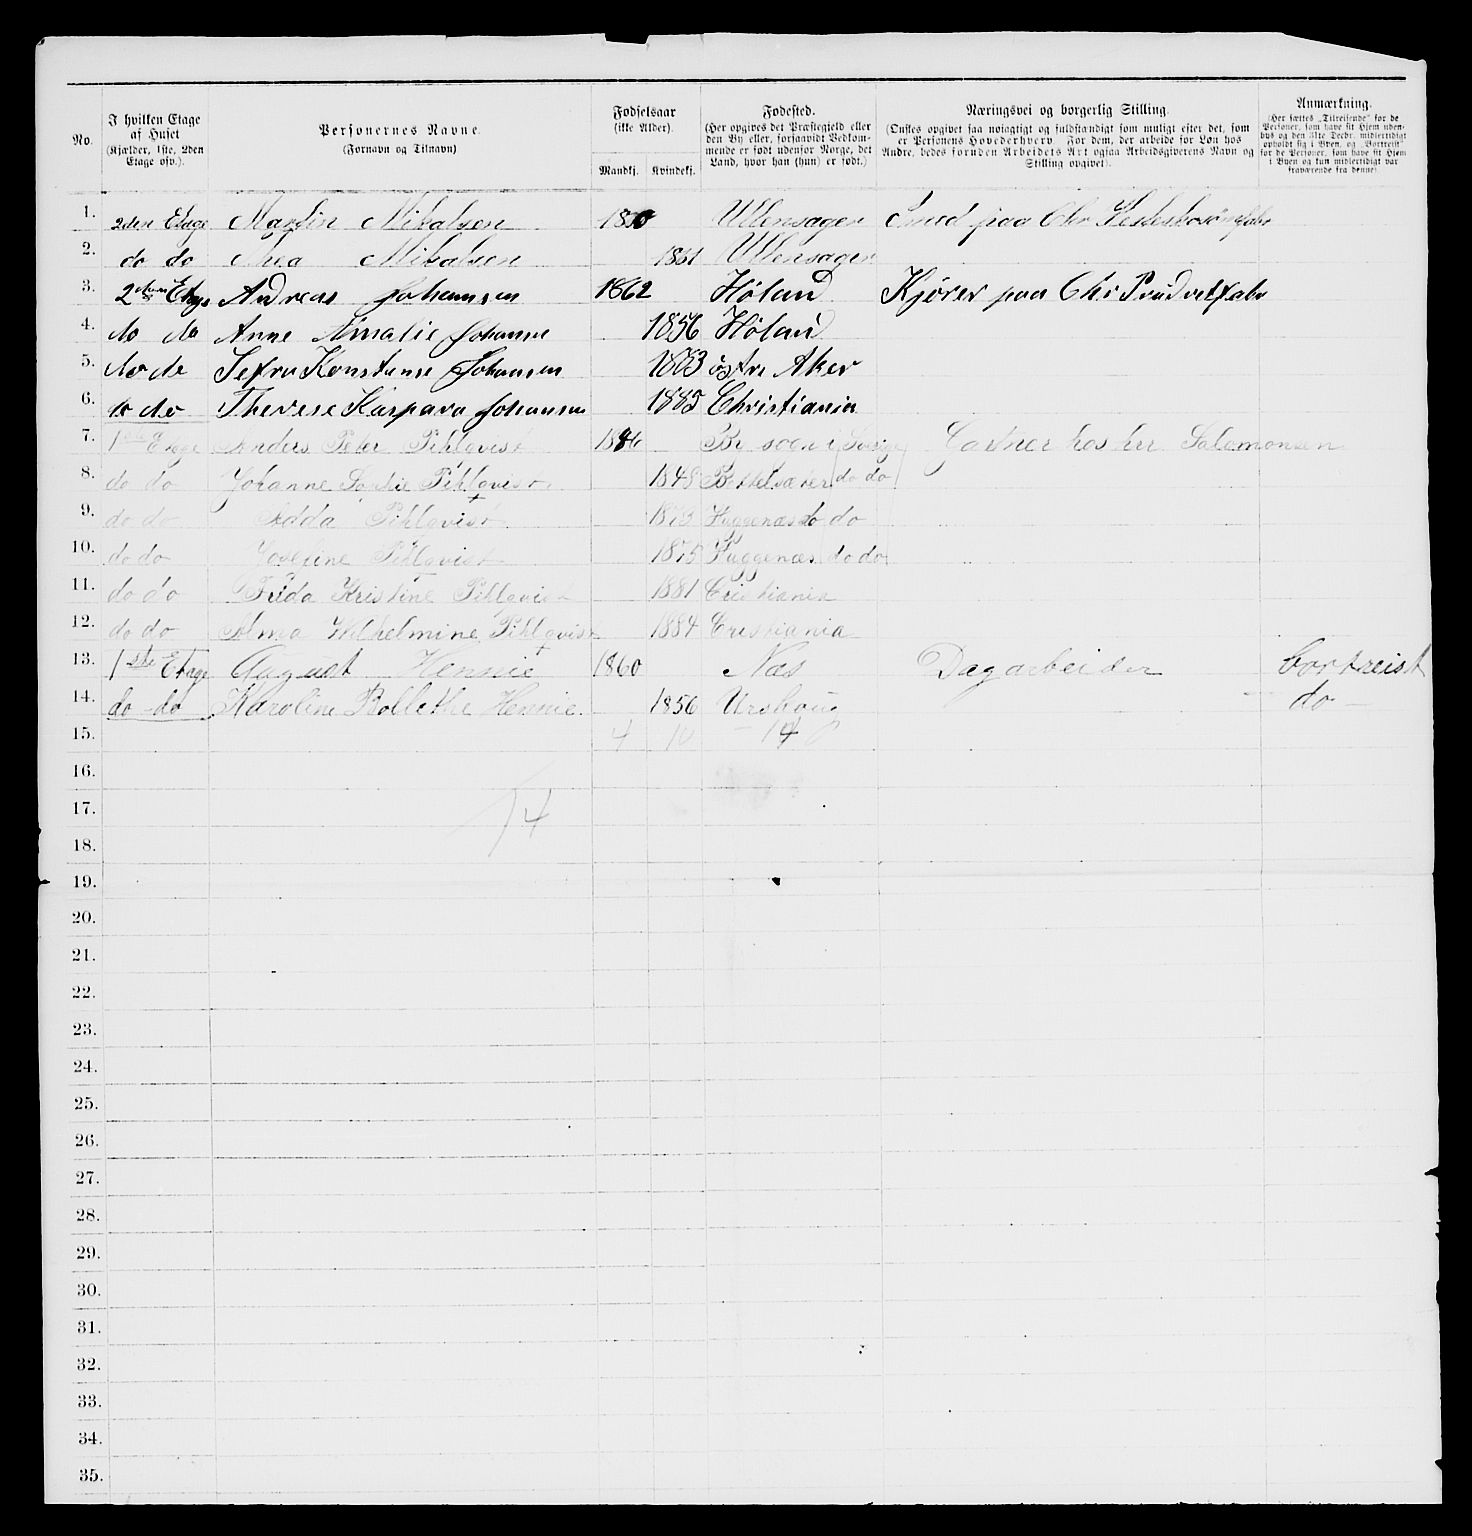 No.
I hvilken Etage af Huset (Kjælder, 1ste, 2den Etage osv.).
Personernes Navne. (Fornavn og Tilnavn)
Fødselsaar (ikke Alder).
Mandkj. Kvindekj.
Fødested. (Her opgives det Præstegjeld eller den By eller, forsaavidt Vedkommende er født udenfor Norge, det Land, hvor han (hun) er født.)
Næringsvei og borgerlig Stilling. (Ønskes opgivet saa nøiagtigt og fuldstændigt som muligt efter det, som er Personens Hovederhverv. For dem, der arbeide for Løn hos Andre, bedes foruden Arbeidets Art ogsaa Arbeidsgiverens Navn og Stilling opgivet).
Anmærkning. (Her sættes „Tilreisende“ for de Personer, som have sit Hjem udenbys og den 31te Decbr. midlertidigt opholdt sig i Byen, og „Bortreist“ for de Personer, som have sit Hjem i Byen og kun midlertidigt var fraværende fra denne).
1. 2den Etage Martin Mikalsen 1850 Ullensager Smed paa Chr
2. do do Thea Mikalsen 1861 Ullensager
3. 2den Etage Andreas Johansen 1862 Høland Kjører paa Chr
4. do do Anne Amalie Johanse 1856 Høland
5. do do Konstanse Johansen 1883 østre Aker
6. do do Therese Kaspara Johansen 1885 Christiania
7. 1ste Etage Anders Peter Pihlqvist 1846 By sogn i Sverige Gartner hos her Salomonsen
8. do do Johanne Pihlqvist 1848 do do
9. do do Adda Pihlqvist 1873 Huggenæs do do
10. do do Josefine Pihlqvist 1875 Huggenæs do do
11. do do Frida Kristine Pihlqvist 1881 Cristiania
12. do do Alma Wilhelmine Pihlqvist 1884 Cristiania
13. 1ste Etage August Hennie 1860 Næs Dagarbeider bortreist
14. do do Karoline Bollethe Hennie 1856 Urskoug do
15. 4 10 14
16.
17. 14
18.
19.
20.
21.
22.
23.
24.
25.
26.
27.
28.
29.
30.
31.
32.
33.
34.
35.